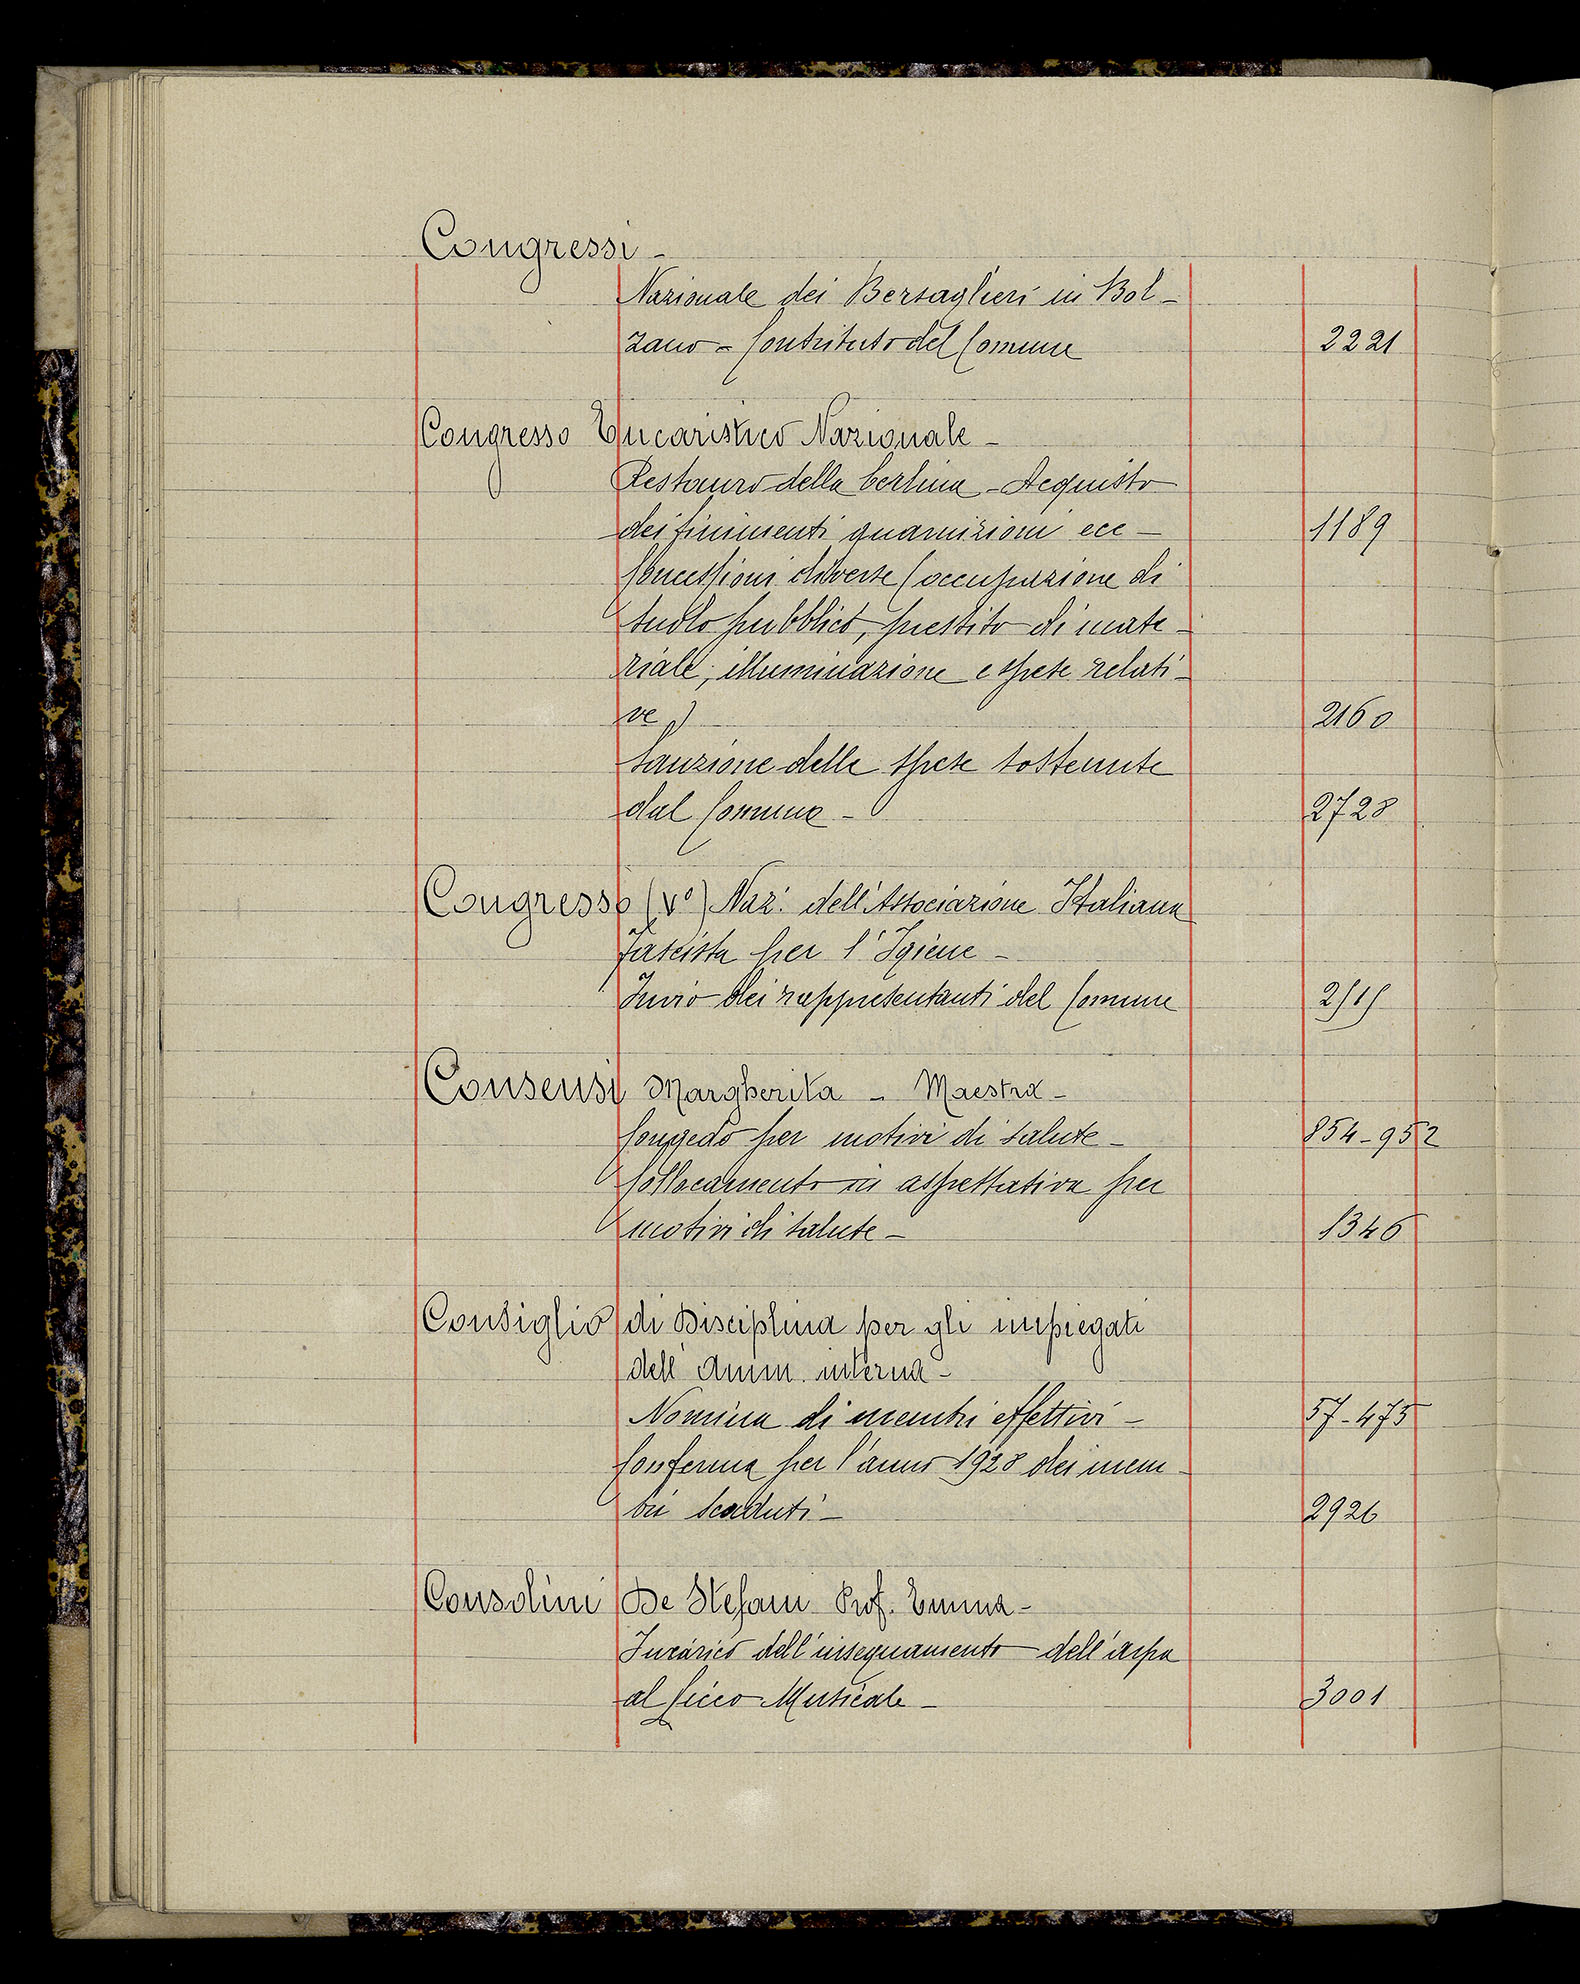 Congressi -
Nazionale dei Bersaglieri in Bol-
zano - Contributo del Comune 2221
Congresso Eucaristico Nazionale -
Restauro della berlina - Acquisto
dei finimenti guarnizioni ecc - 1189
Concessioni diverse (occupazione di
suolo pubblico, prestito di mate-
riale, illuminazione e spese relati-
ve) 2160
Sanzione delle spese sostenute
dal Comune - 2728
Congresso (V°) Naz. dell'Associazione Italiana
Fascista per l'Igiene -
Invio dei rappresentanti del Comune 2515
Consensi Margherita - Maestra -
Congedo per motivi di salute - 854-952
Collocamento in aspettativa per
motivi di salute - 1346
Consiglio di Disciplina per gli impiegati
dell'Amm. interna -
Nomina di membri effettivi - 57-475
Conferma per l'anno 1928 dei mem-
bri scaduti - 2926
Consolini De Stefani Prof. Emma -
Incarico dell'insegnamento dell'arpa
al Liceo Musicale - 3001